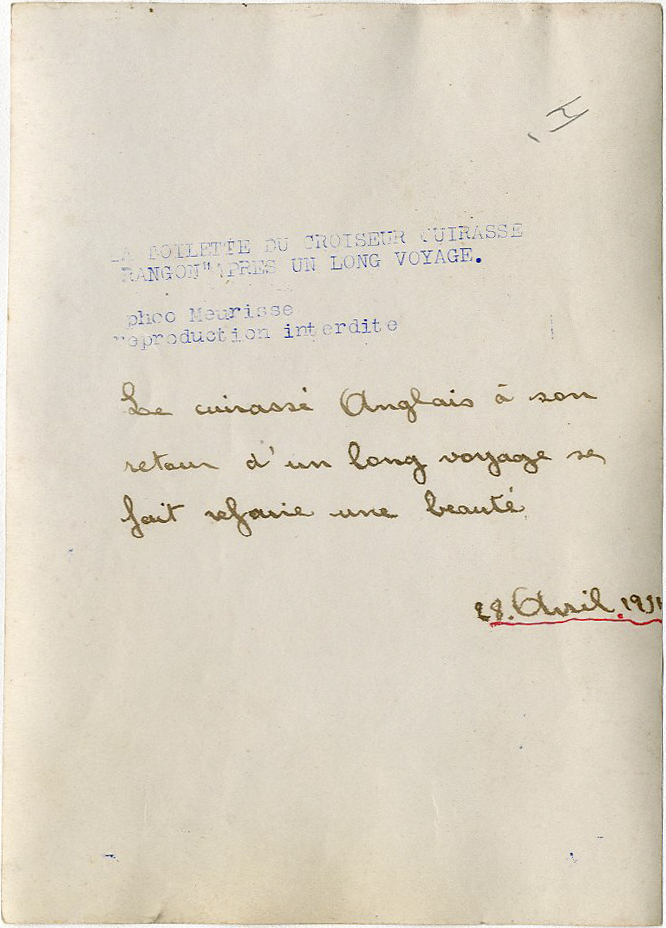 LA TOILETTE DU CROISEUR CUIRASSE
RANGON" APRES UN LONG VOYAGE.
phoo Meurisse
reproduction interdite
Le cuirassé Anglais à son
retour d'un long voyage se
fait refaire une beauté
28. Avril.